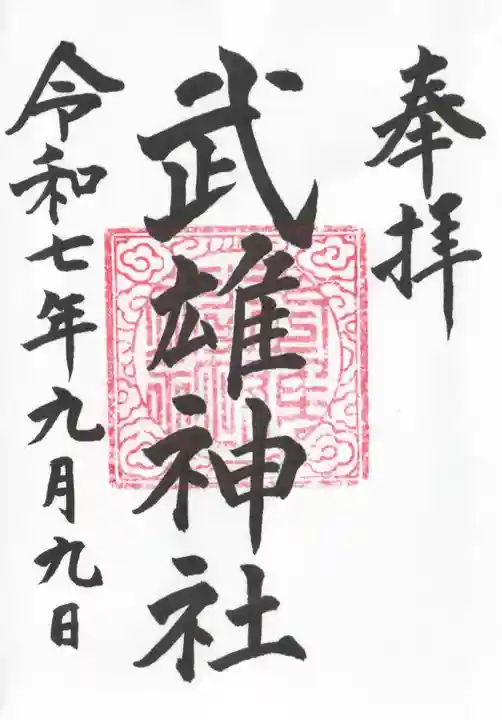 奉拝
武雄神社
令和七年九月九日